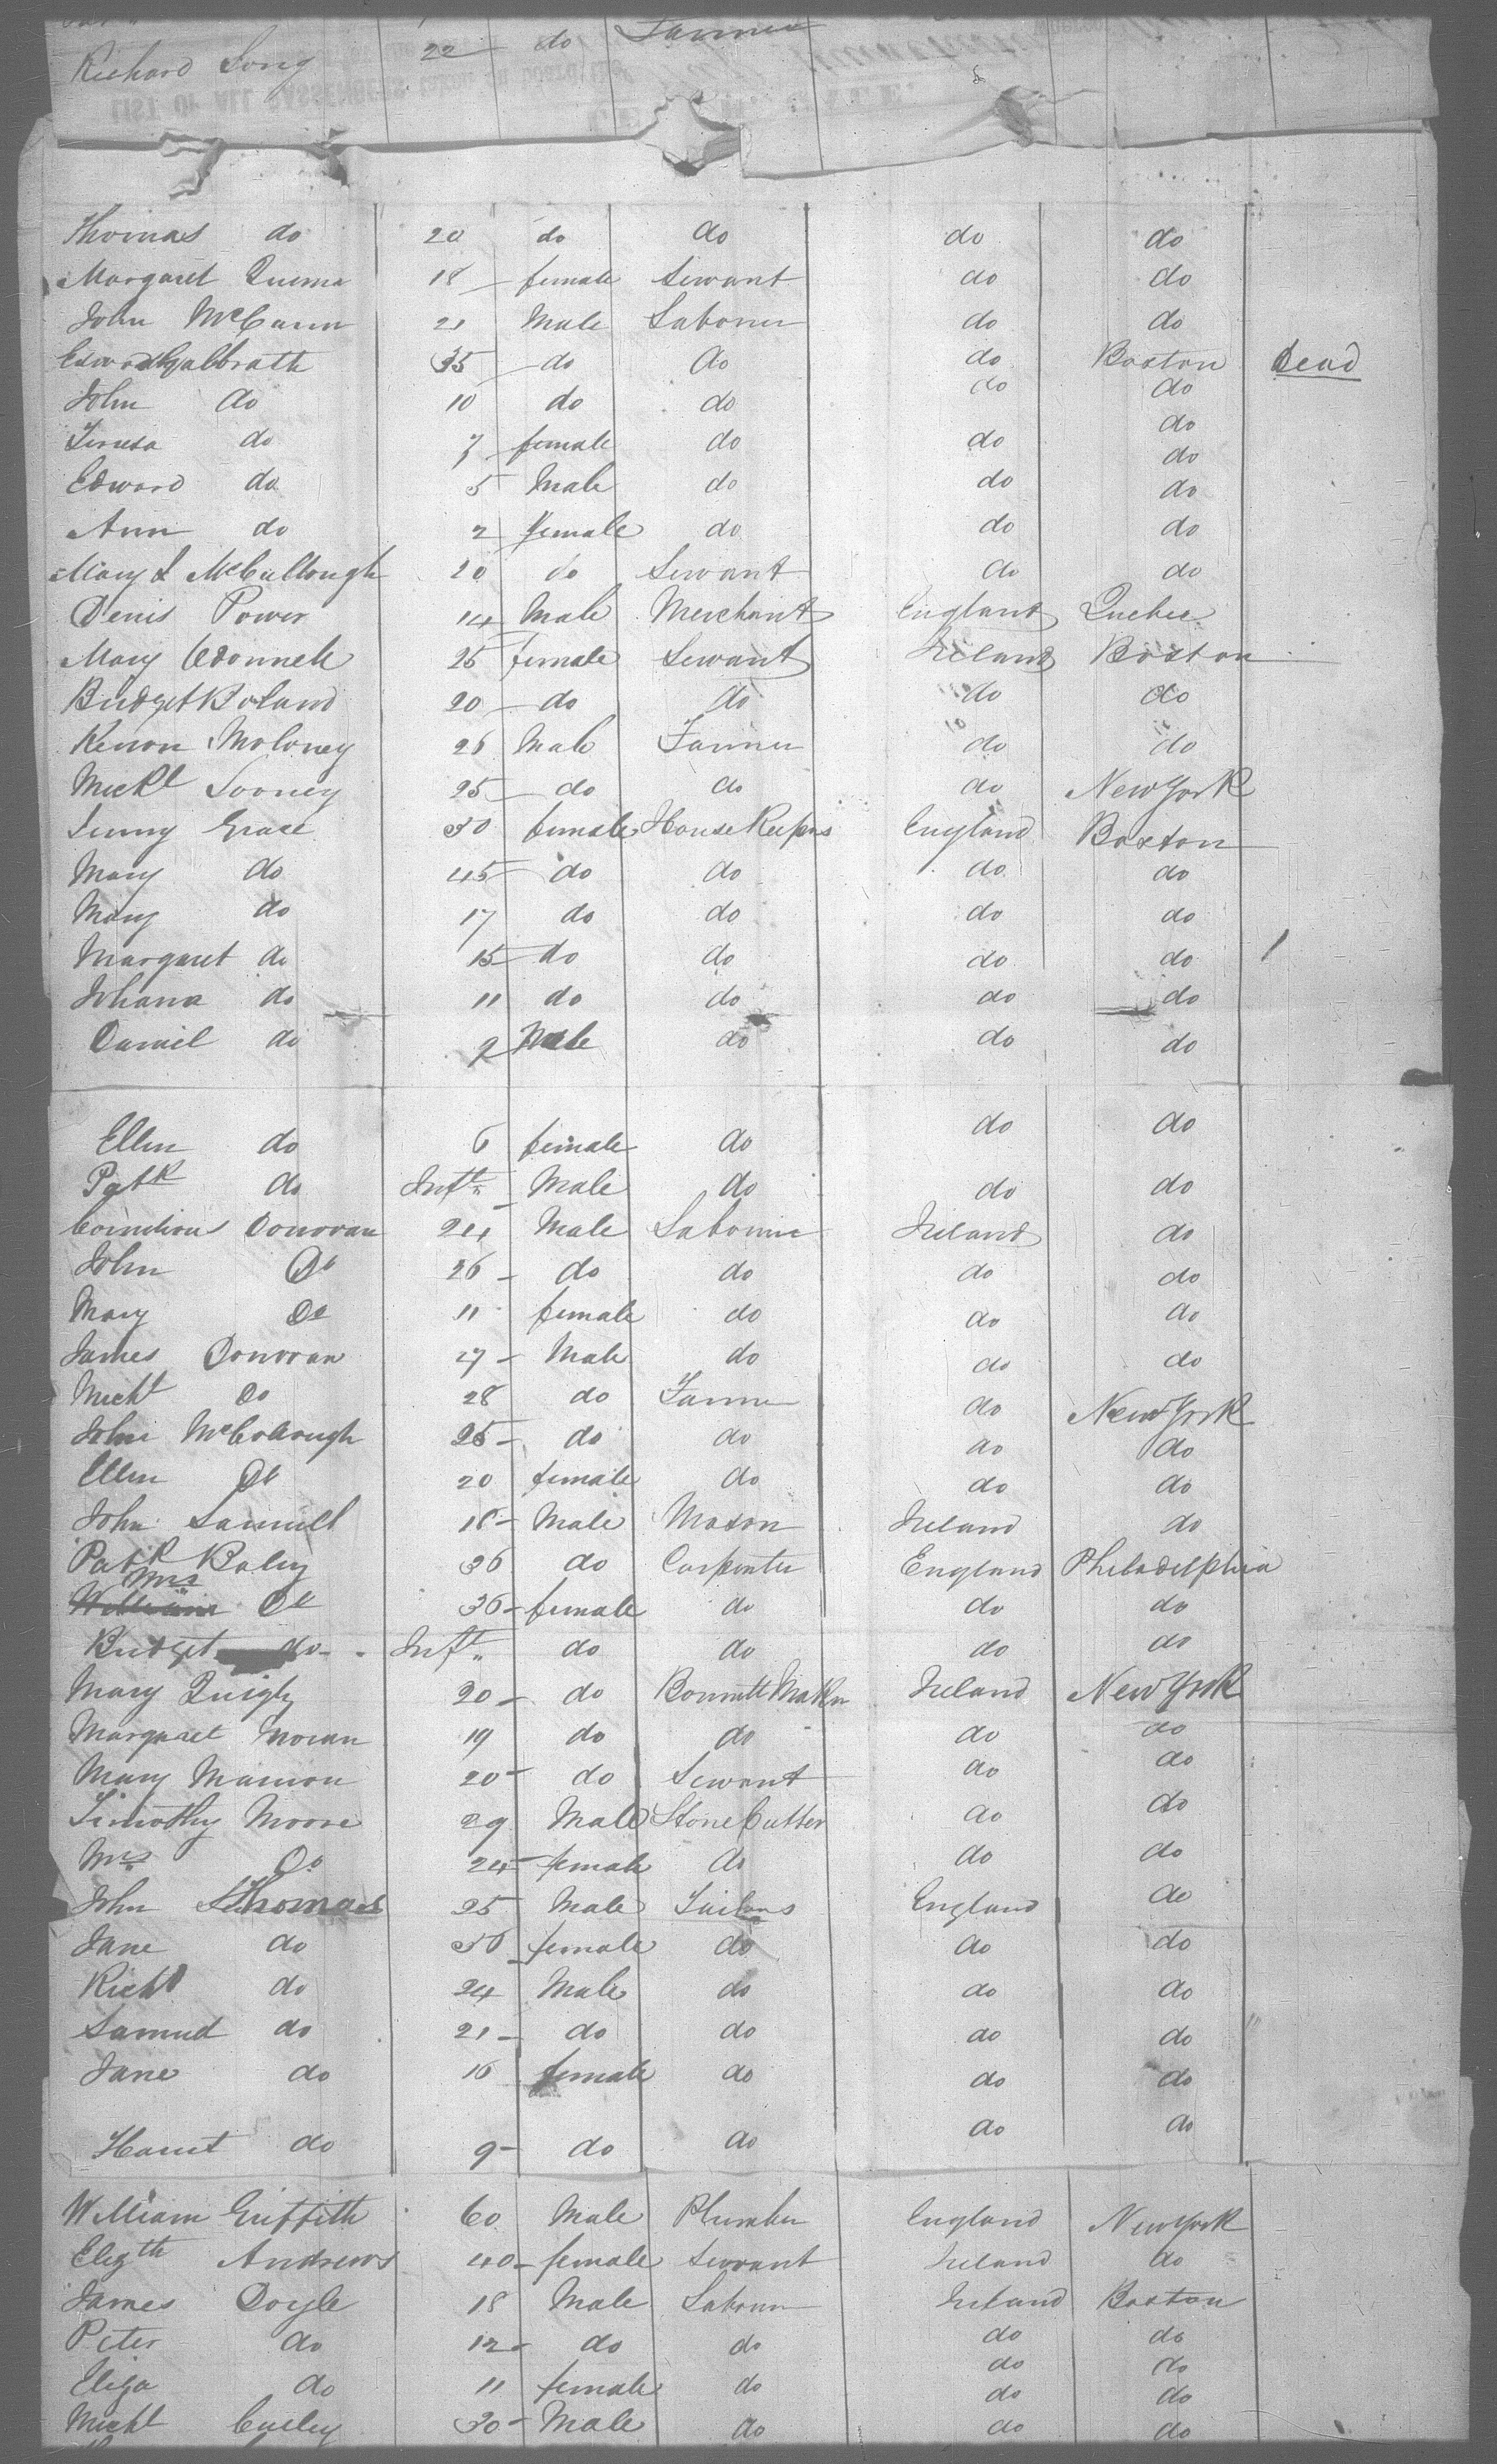 Richard Long 22 do Farmer
Thomas do 20 do do do do
Margaret 18 female Servant do do
John McCann 21 Male Laborer do do
Edward Galbrath 35 do do do Boston Dead
John do 10 do do do do
Teresa do 7 female do do do
Edward do 5 Male do do do
Ann do 2 female do do do
Mary McCullough 20 do Servant do do
Denis Power 14 Male Merchant England Quebec
Mary Odonnell 25 female Servant Ireland Boston
Bridget Boland 20 do do do do
Moloney 26 Male Farmer do do
Michl Looney 25 do do do New York
Grace 30 female House Keepers England Boston
Mary do 45 do do do do
Mary do 17 do do do do
Margaret do 15 do do do do
Johana do 11 do do do do
Daniel do 9 Male do do do
Ellen do 6 female do do do
Patk do Inft Male do do do
Cornelious Donovan 24 Male Laborer Ireland do
John Do 26 do do do do
Mary Do 11 female do do do
James Donovan 27 Male do do do
Michl Do 28 do Farmer do New York
John 25 do do do do
Ellen Do 20 female do do do
John Sammell 18 Male Mason Ireland do
Patk Raley 36 do Carpenter England Philadelphia
Mrs Do 36 female do do do
Bridget do Inft do do do do
Mary Quigly 20 do Bonnett Maker Ireland New York
Margaret Moran 19 do do do do
Mary Marion 20 do Servant do do
Timothy Moore 29 Male Stone Cutter do do
Mrs Do 24 female do do do
John Thomas 25 Male Tailors England do
Jane do 50 female do do do
Richd do 24 Male do do do
Samuel do 21 do do do do
Jane do 16 female do do do
Harriet do 9 do do do do
William Griffith 60 Male Plumber England New York
Elizth Andrews 40 female Servant Ireland do
James Doyle 18 Male Laborer Ireland Boston
Peter do 12 do do do do
Eliza do 11 female do do do
Michl Curley 30 Male do do do